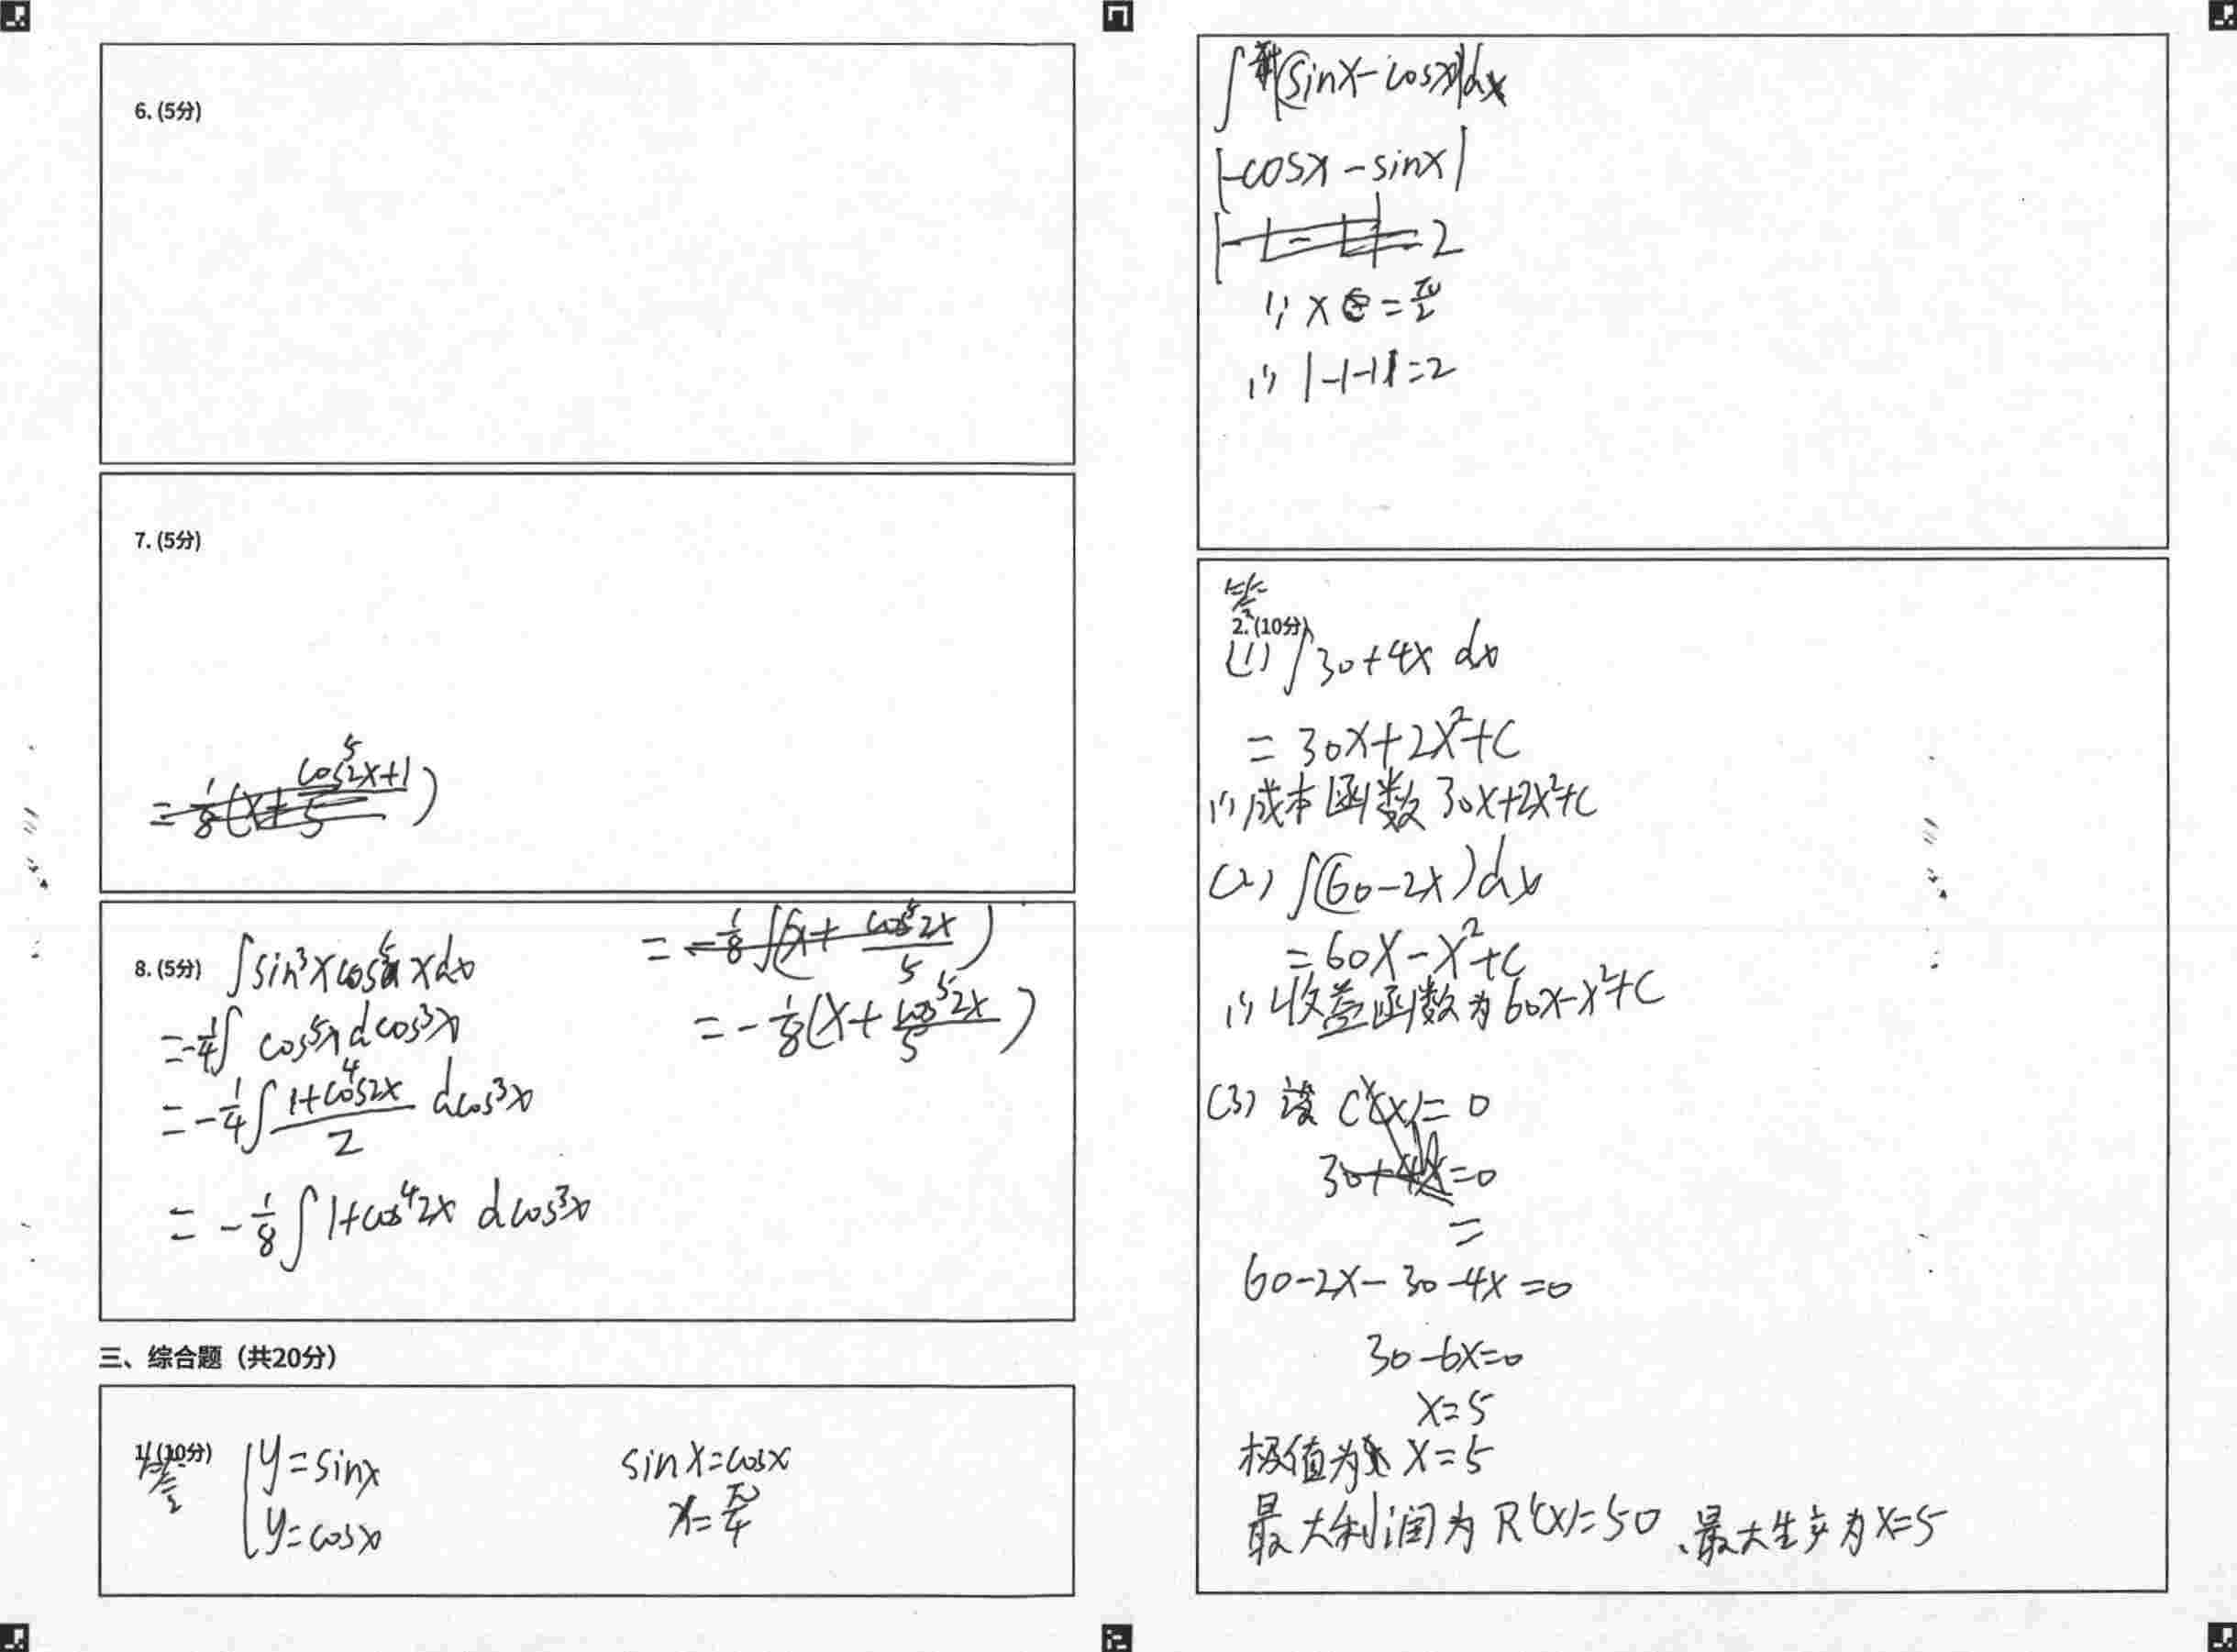 6. (5分)
7. (5分)
= 1/8 (x + cos⁵2x+1 / 5)
8. (5分) ∫sin³xcos⁵xdx
= -1/4∫ cos⁵x dcos³x
= -1/4∫ 1+cos⁴2x / 2 dcos³x
= -1/8 ∫ 1+cos⁴2x dcos³x
= -1/8 ∫(x + cos⁵2x / 5)
= -1/8 (x + cos⁵2x / 5)
三、综合题（共20分）
1. (10分)
答
{ y=sinx
y=cosx
sinx=cosx
x=π/4
∫|(sinx-cosx)|dx
|-cosx-sinx|
|-1-1|=2
∵ x = π/2
∴ |-1-1|=2
答
2. (10分)
(1) ∫30+4x dx
= 30x+2x²+C
∴成本函数 30x+2x²+C
(2) ∫(60-2x)dx
= 60x-x²+C
∴收益函数为60x-x²+C
(3) 设 C'(x)=0
30+4x=0
=
60-2x-30-4x=0
30-6x=0
x=5
极值为 x=5
最大利润为R'(x)=50、最大生产为x=5